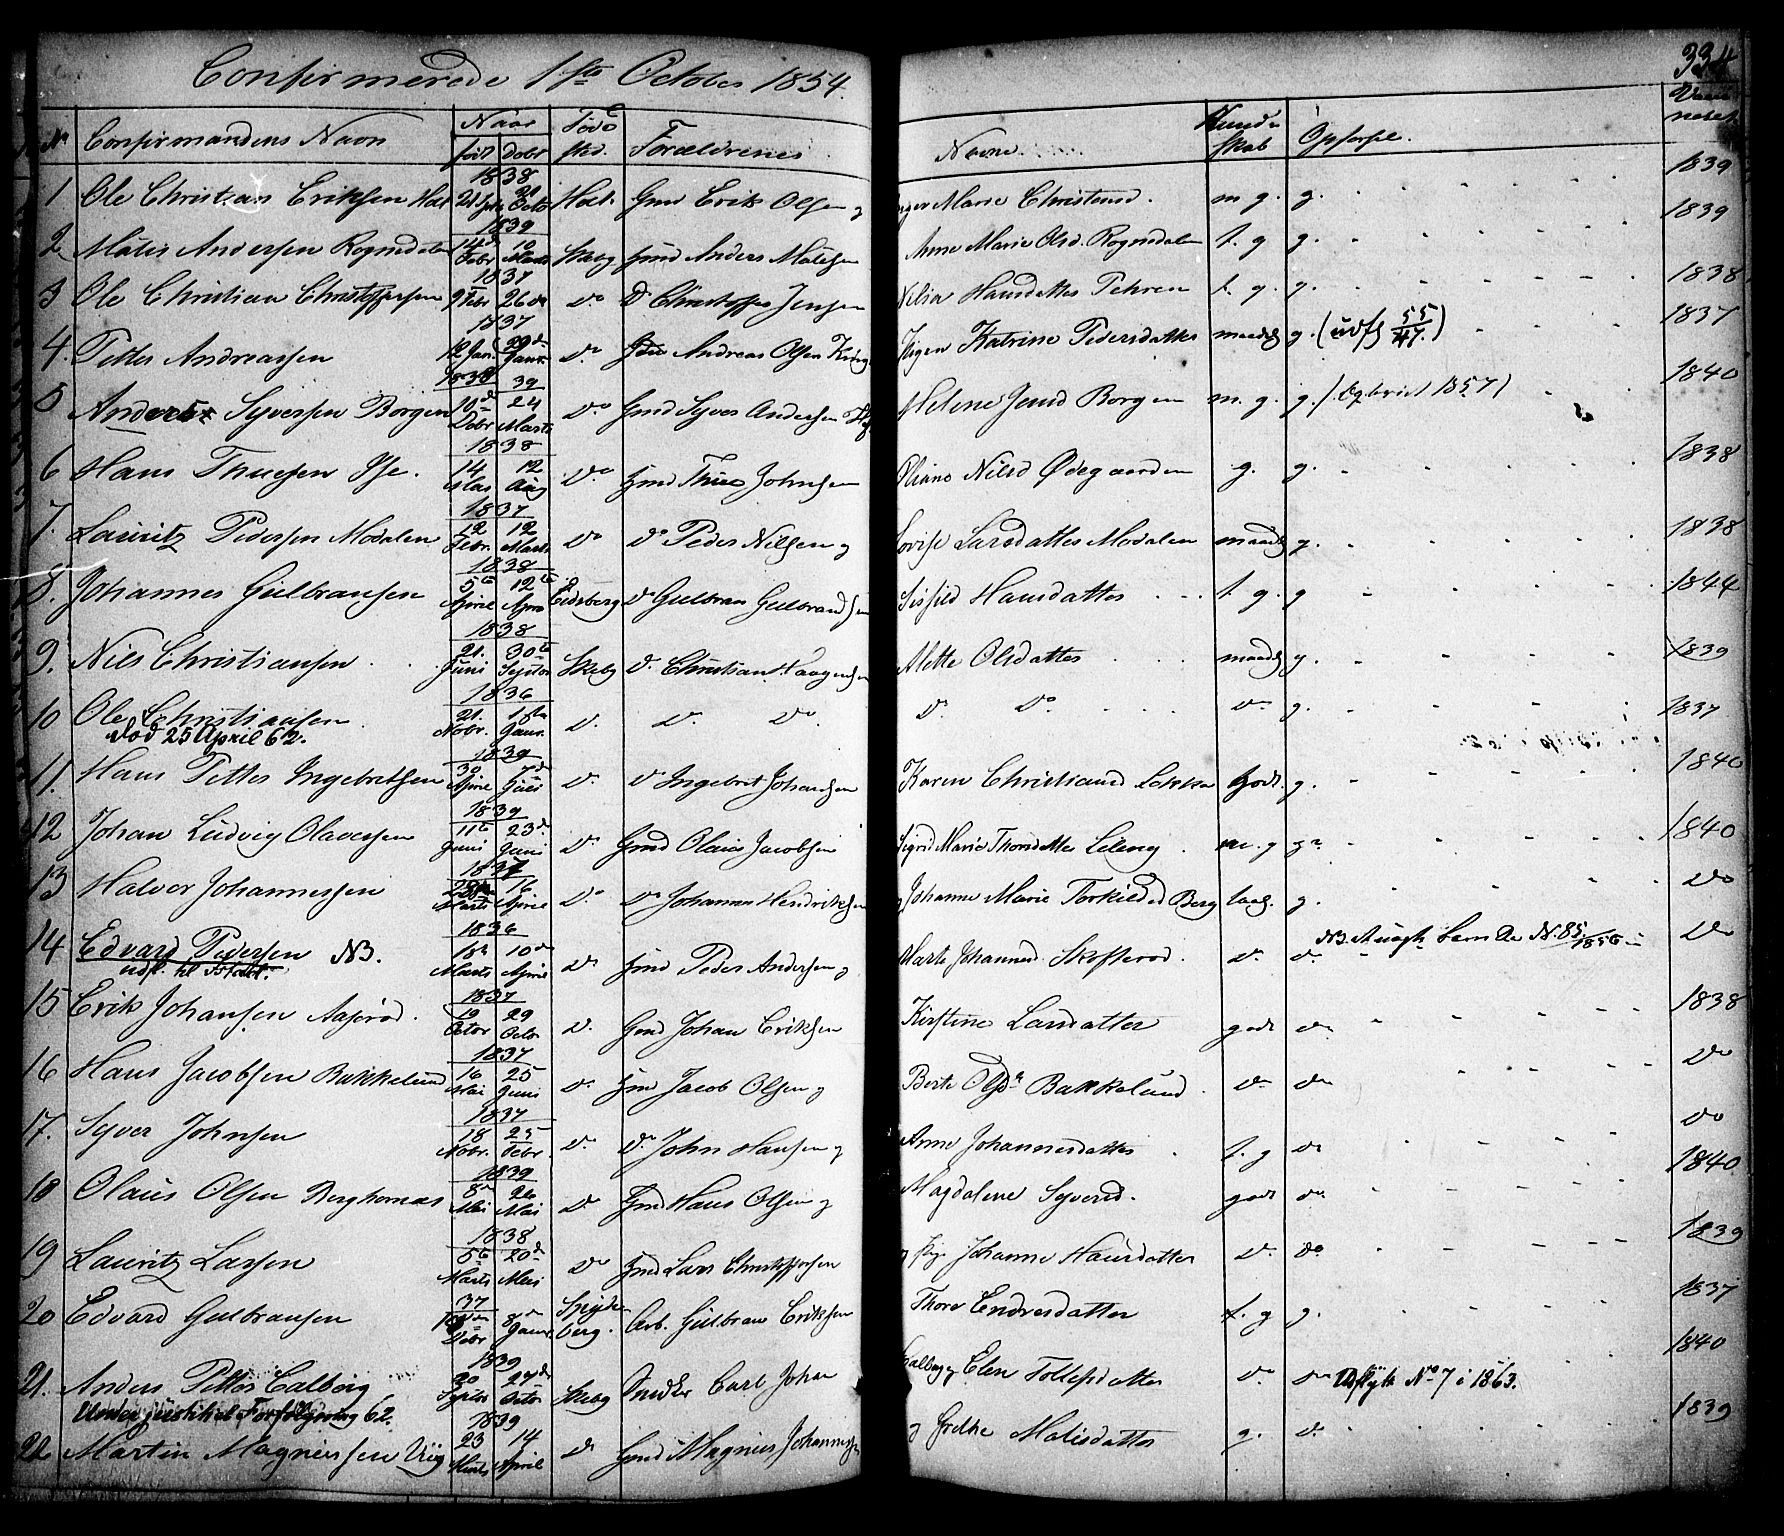 Confirmerede 1ste October 1854.
334
No Confirmandens Navn Naar Føde Forældrenes Navne Kund- Opførsel. Vacci
født Døbt sted. skab neret
1838 1839
1 Ole Christian Eriksen Holt 21 Octo Holt Gmd Erik Olsen og Marie Christensd. m g. g.
1839 1839
2 Matis Andersen Rognsdalen 14de 12 Febr Marts Skebg Gmd Anders Matisen Anne Marie Olsd. Rognsdalen t. g g.
1837 1838
3 Ole Christian Christoffersen 9 Febr 26de do Do Christoffer Jensen Nilia Hansdatter Pehren t. g. g.
1837 1837
4. Petter Andreassen 12 Jan. 29de Janr. do Andreas Olsen Krog Katrine Pedersdatter maadl g. (udfl 55/47.)
1838 39 1840
5 Anders Syversen Borgen 10de 24 Debr Marts do Gmd Syver Andersen Helene Jensd Borgen m. g. g.
1838 1838
6 Hans Thuesen 14 12 Mai Aug do. Gmd Thue Johnsen Nilsd Ødegaarden g. g.
1837 1838
7. Lauritz Pedersen Modalen 12 12 Febr. Marts do do Peder Nilsen og Lovise Larsdatter Modalen maadl g.
1838 1844
8. Johannes Gulbransen 5te 12te April April Eidsberg do Gulbran Gulbrandsen Sisfild Hansdatter t. g. g
1838 1839
9. Nils Christiansen 21. 30te Juni Skebg do. Christian Haagensen Alette Olsdatter maadl g.
1836 1837
10 Ole Christiansen 21. 1ste Nobr. Janr. do. do. do. do. do. do g.
død 25 April 62.
1839 1840
11. Hans Petter Ingebretsen 30 7de April Juli do. do Ingebret Johansen Karen Christiansd Lekka godt. g.
1839 1840
12 Johan Ludvig Olavesen 11te 23de Juni Juni do. Gmd Olaus Jacobsen Sigrid Marie Thorsdatter Leleng m. g g
1837 do
13 Halvor Johannessen 16 Marts April do. do Johannes Hendriksen og Johanne Marie Torkildsd Berg g.
1836 do
14 Edvard Pedersen NB. 18de 10de Marts April do. Gmd Peder Andersen og Marte Johannesd Skofterød. do. do NB. N. 85/1856
udfl. til
1837 1838
15 Erik Johansen Aaserød. 19 29 Octor Octr do. Gmd Johan Eriksen Kirstine Larsdatter godt do
1837 do
16 Hans Jacobsen Bakkelund 16 25 Mai Juni do. Gmd Jacob Olsen og Berte Olsdr Bakkelund. do. do
1837 do
17. Syver Johnsen 18 25 Nobr. Febr. do. do. John Hansen og Anne Johannesdatter t. g do
1839 1840
18 Olaus Olsen Berghornaas 8de 26 Mai Mai do. Gmd Hans Olsen og Magdalene Syversd. godt do
1838 1839
19 Lauritz Larsen 5te 20de Marts Mai do Gmd Lars Christoffersen og Johanne Hansdatter do. do
37 1837
20 Edvard Gulbransen Debr 8de Janr Spydeberg. Arb. Gulbran Eriksen Thore Endresdatter t. g g.
1839 1840
21. Anders Petter Calberg 20 27de Octor Skebg Snedker Carl Johan Calberg og Elen Tollefsdatter do. do Udflytt No 7 i 1863.
Under justitiel Forfølgning 62.
1839 1839
22 Martin Magnussen 23 14 Marts April do Gmd Magnus Johannessen og Grethe Matisdatter g. do.